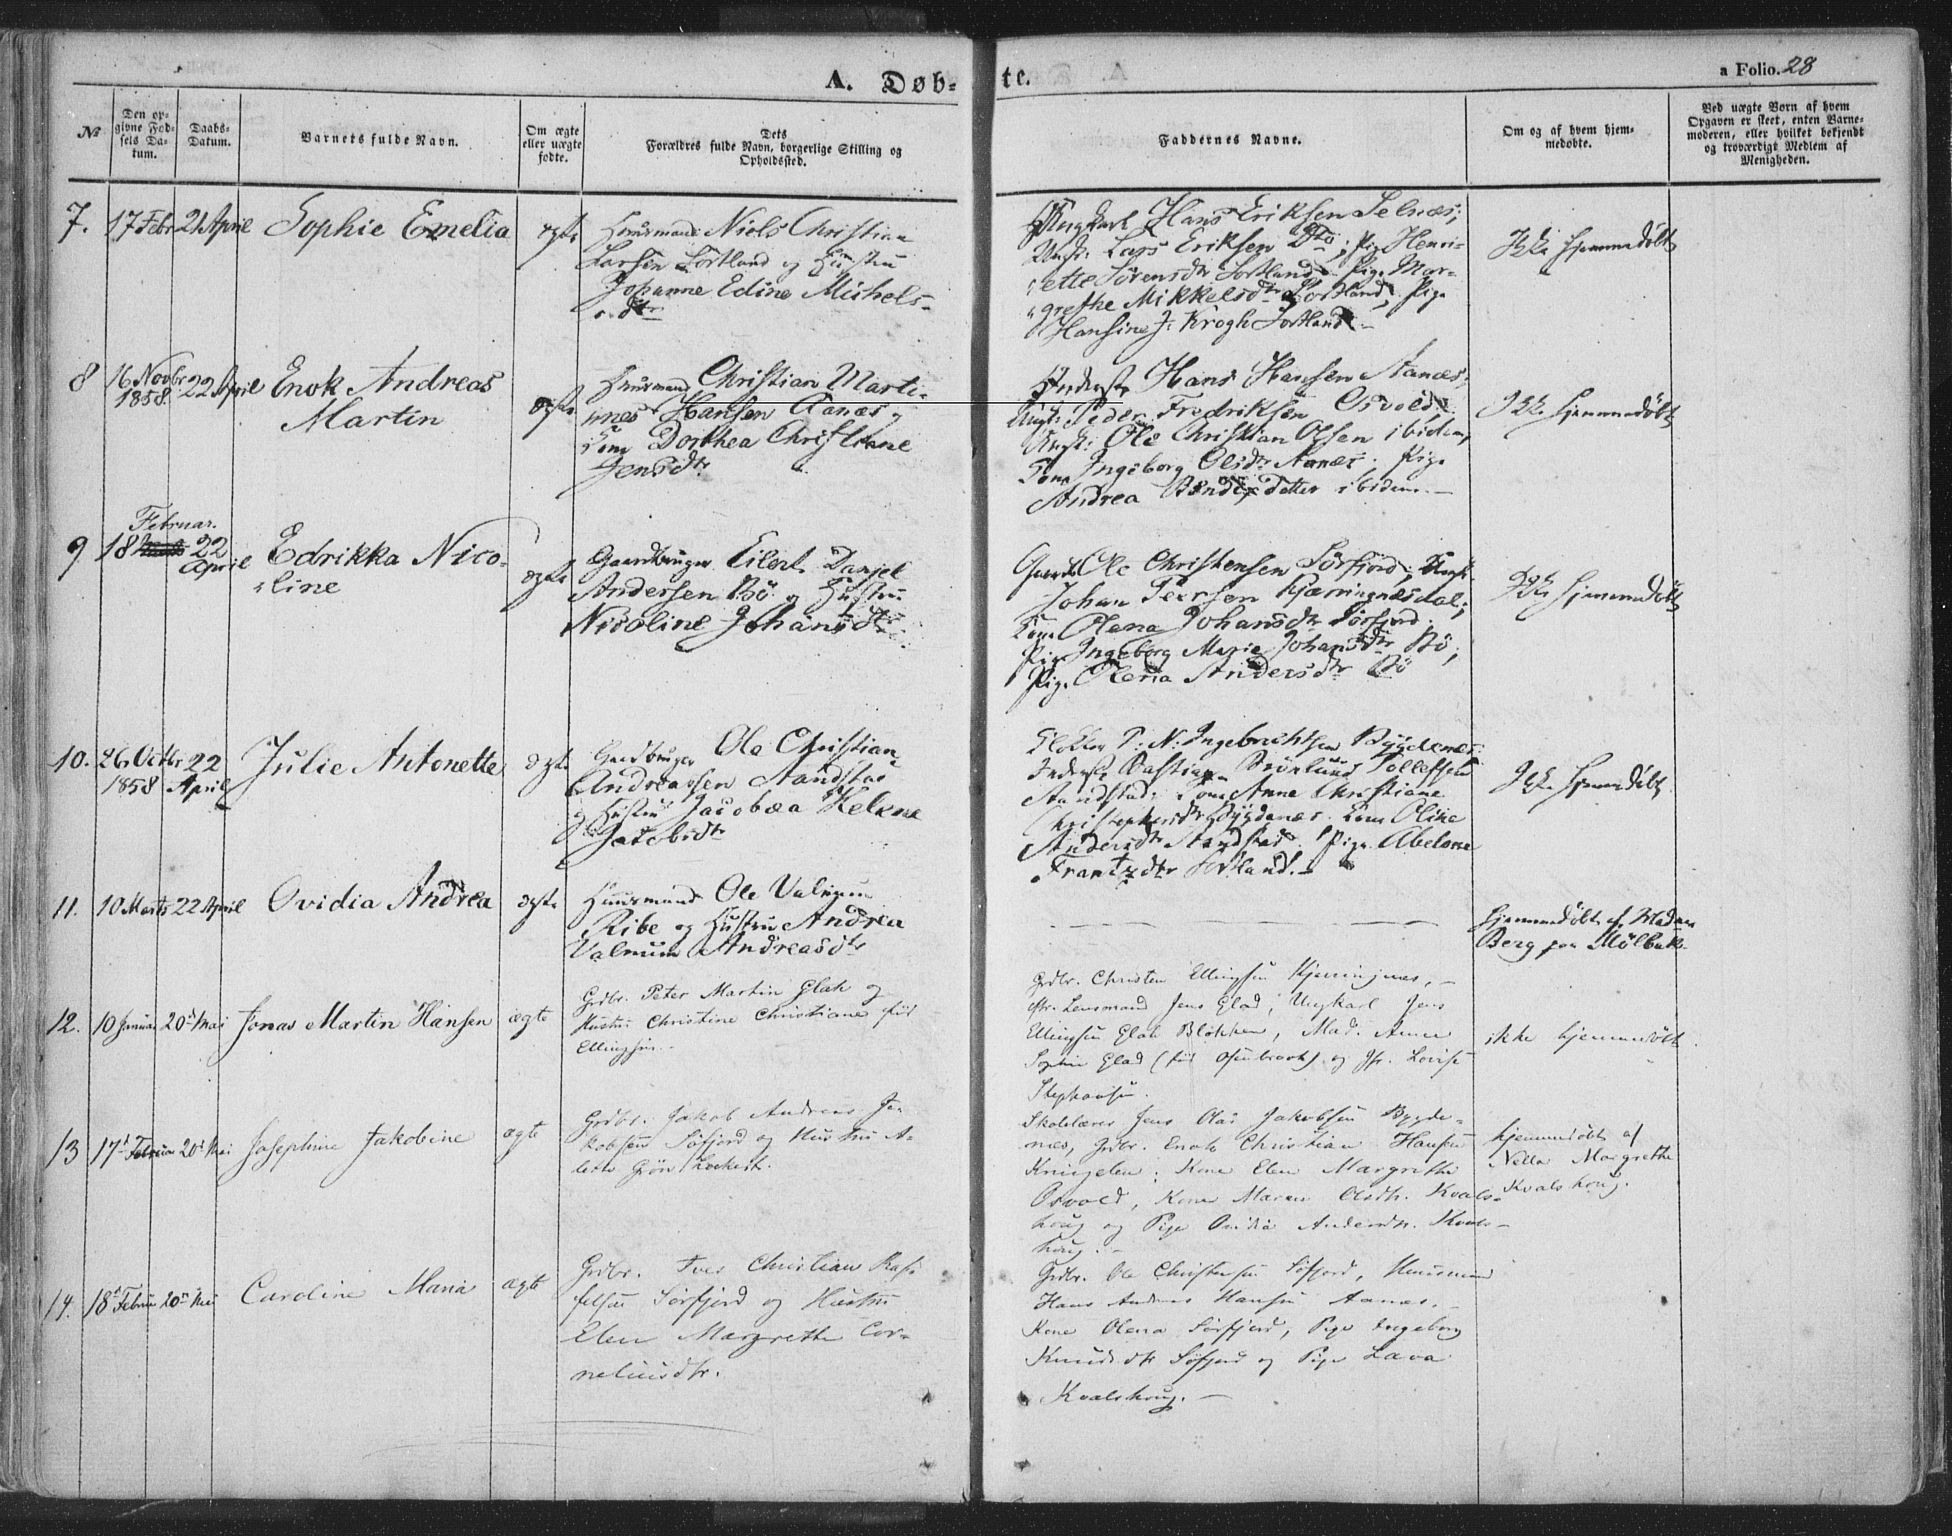 A. Døb-
te.
a Folio. 28
No
Den op-
givne Fød-
sels Da-
tum.
Daabs-
Datum.
Barnets fulde Navn.
Om ægte
eller uægte
fødte.
Dets
Forældres fulde Navn, borgerlige Stilling og
Opholdssted.
Faddernes Navne.
Om og af hvem hjem-
medøbte.
Ved uægte Børn af hvem
Opgaven er skeet, enten Barne-
moderen, eller hvilket bekjendt
og troværdigt Medlem af
Menigheden.
7. 17 Febr 21 April Sophie Emelia ægte
Huusmand Niels Christian
Larsen Sortland og Hustru
Johanne Edine Michels-
dtr
Ungkarl Hans Eriksen Selnæs;
Ungk. Lars Eriksen Dto; Pige Henri-
ette Sørensdtr Sortland. Pige Mar-
grethe Mikkelsdtr Sortland, Pige
Hansine J. Krogh Sortland -
Ikke hjemmedøbt
8 16 Novbr 1858. 22 April Enok Andreas
Martin
ægte
Huusmand Christian Marti-
nus Hansen Aanæs og
Kone Dorthea Christiane
Jensdtr
Inderst Hans Hansen Aanæs;
Ungk. Peder Fredriksen Osvold;
Ungk: Ole Christian Olsen ibidem,
Kone Ingeborg Olsdtr Aanæs. Pige
Andrea ibidem. -
Ikke hjemmedøbt
9 18 Februar. 22 April Edrikka Nico-
line
ægte
Gaardbruger Eilert Danjel
Andersen Bö og Hustru
Nicoline Johansdtr
Ole Christensen Sørfjord;
Johan Peersen Kjærringnesdal;
Kone Olena Johansdtr Sørfjord.
Pige Ingeborg Marie Johansdtr Bö;
Pige Olena Andersdtr Bö
Ikke hjemmedøbt
10. 26 Octbr 1858 22 April Julie Antonette ægte
Gaardbruger Ole Christian
Andreassen Aandstad
og Hustru Jacobæa Helene
Jacobsdtr
Klokker P: N: Ingebrichtsen Bygdenæs:
Inderst Bastian Brönlund Tollefsen
Aandstad; Kone Anne Christiane
Christophersdtr Bygdenæs. Kone Oline
Andersdtr Aandstad. Pige Abelone
Frantzdtr Sortland. -
Ikke hjemmedøbt
11. 10 Marts 22 April Ovidia Andrea ægte
Huusmand Ole Valnum
Ribe og Hustru Andrea
Valnum Andreasdtr
Hjemmedøbt af Madam
Berg paa Mølbak.
12. 10 Januar 20de Mai Jonas Martin Hansen ægte
Grdbr. Peter Martin Glad og
Hustru Christine Christiane fød
Ellingsen.
Grdbr. Christen Ellingsen Kjerringnæs, -
Lensmand Jens Glad, Ungkarl Jens
Ellingsen Glad Blokken, Mad. Anne
Sophie Glad og Jfr. Lovise
Stephansen.
ikke hjemmedöbt.
13 17de Februar 20de Mai Josephine Jakobine ægte
Grdbr. Jakob Andreas Ja-
kobsen Sørfjord og Hustru A-
lette Lockert.
Skolelærer Jens Olai Jakobsen Bygde-
næs, Grdbr. Enok Christian Hansen
Kringelen; Kone Elen Margrethe
Osvold, Kone Maren Olsdtr. Kvals-
houg og Pige Ovidia Andersdtr. Kvals-
houg. -
hjemmedöbt af
Nella Margrethe
Kvalshoug.
14. 18de Februar 20de Mai Caroline Maria ægte
Grdbr. Iver Christian
Sørfjord og Hustru
Elen Margrethe Cor-
neliusdtr.
Grdbr. Ole Christensen Sørfjord, Huusmand
Hans Andreas Hansen Aanæs. -
Kone Olena Sørfjord, Pige Ingeborg
Knudsdtr Sørfjord og Pige Lava
Kvalshoug. -